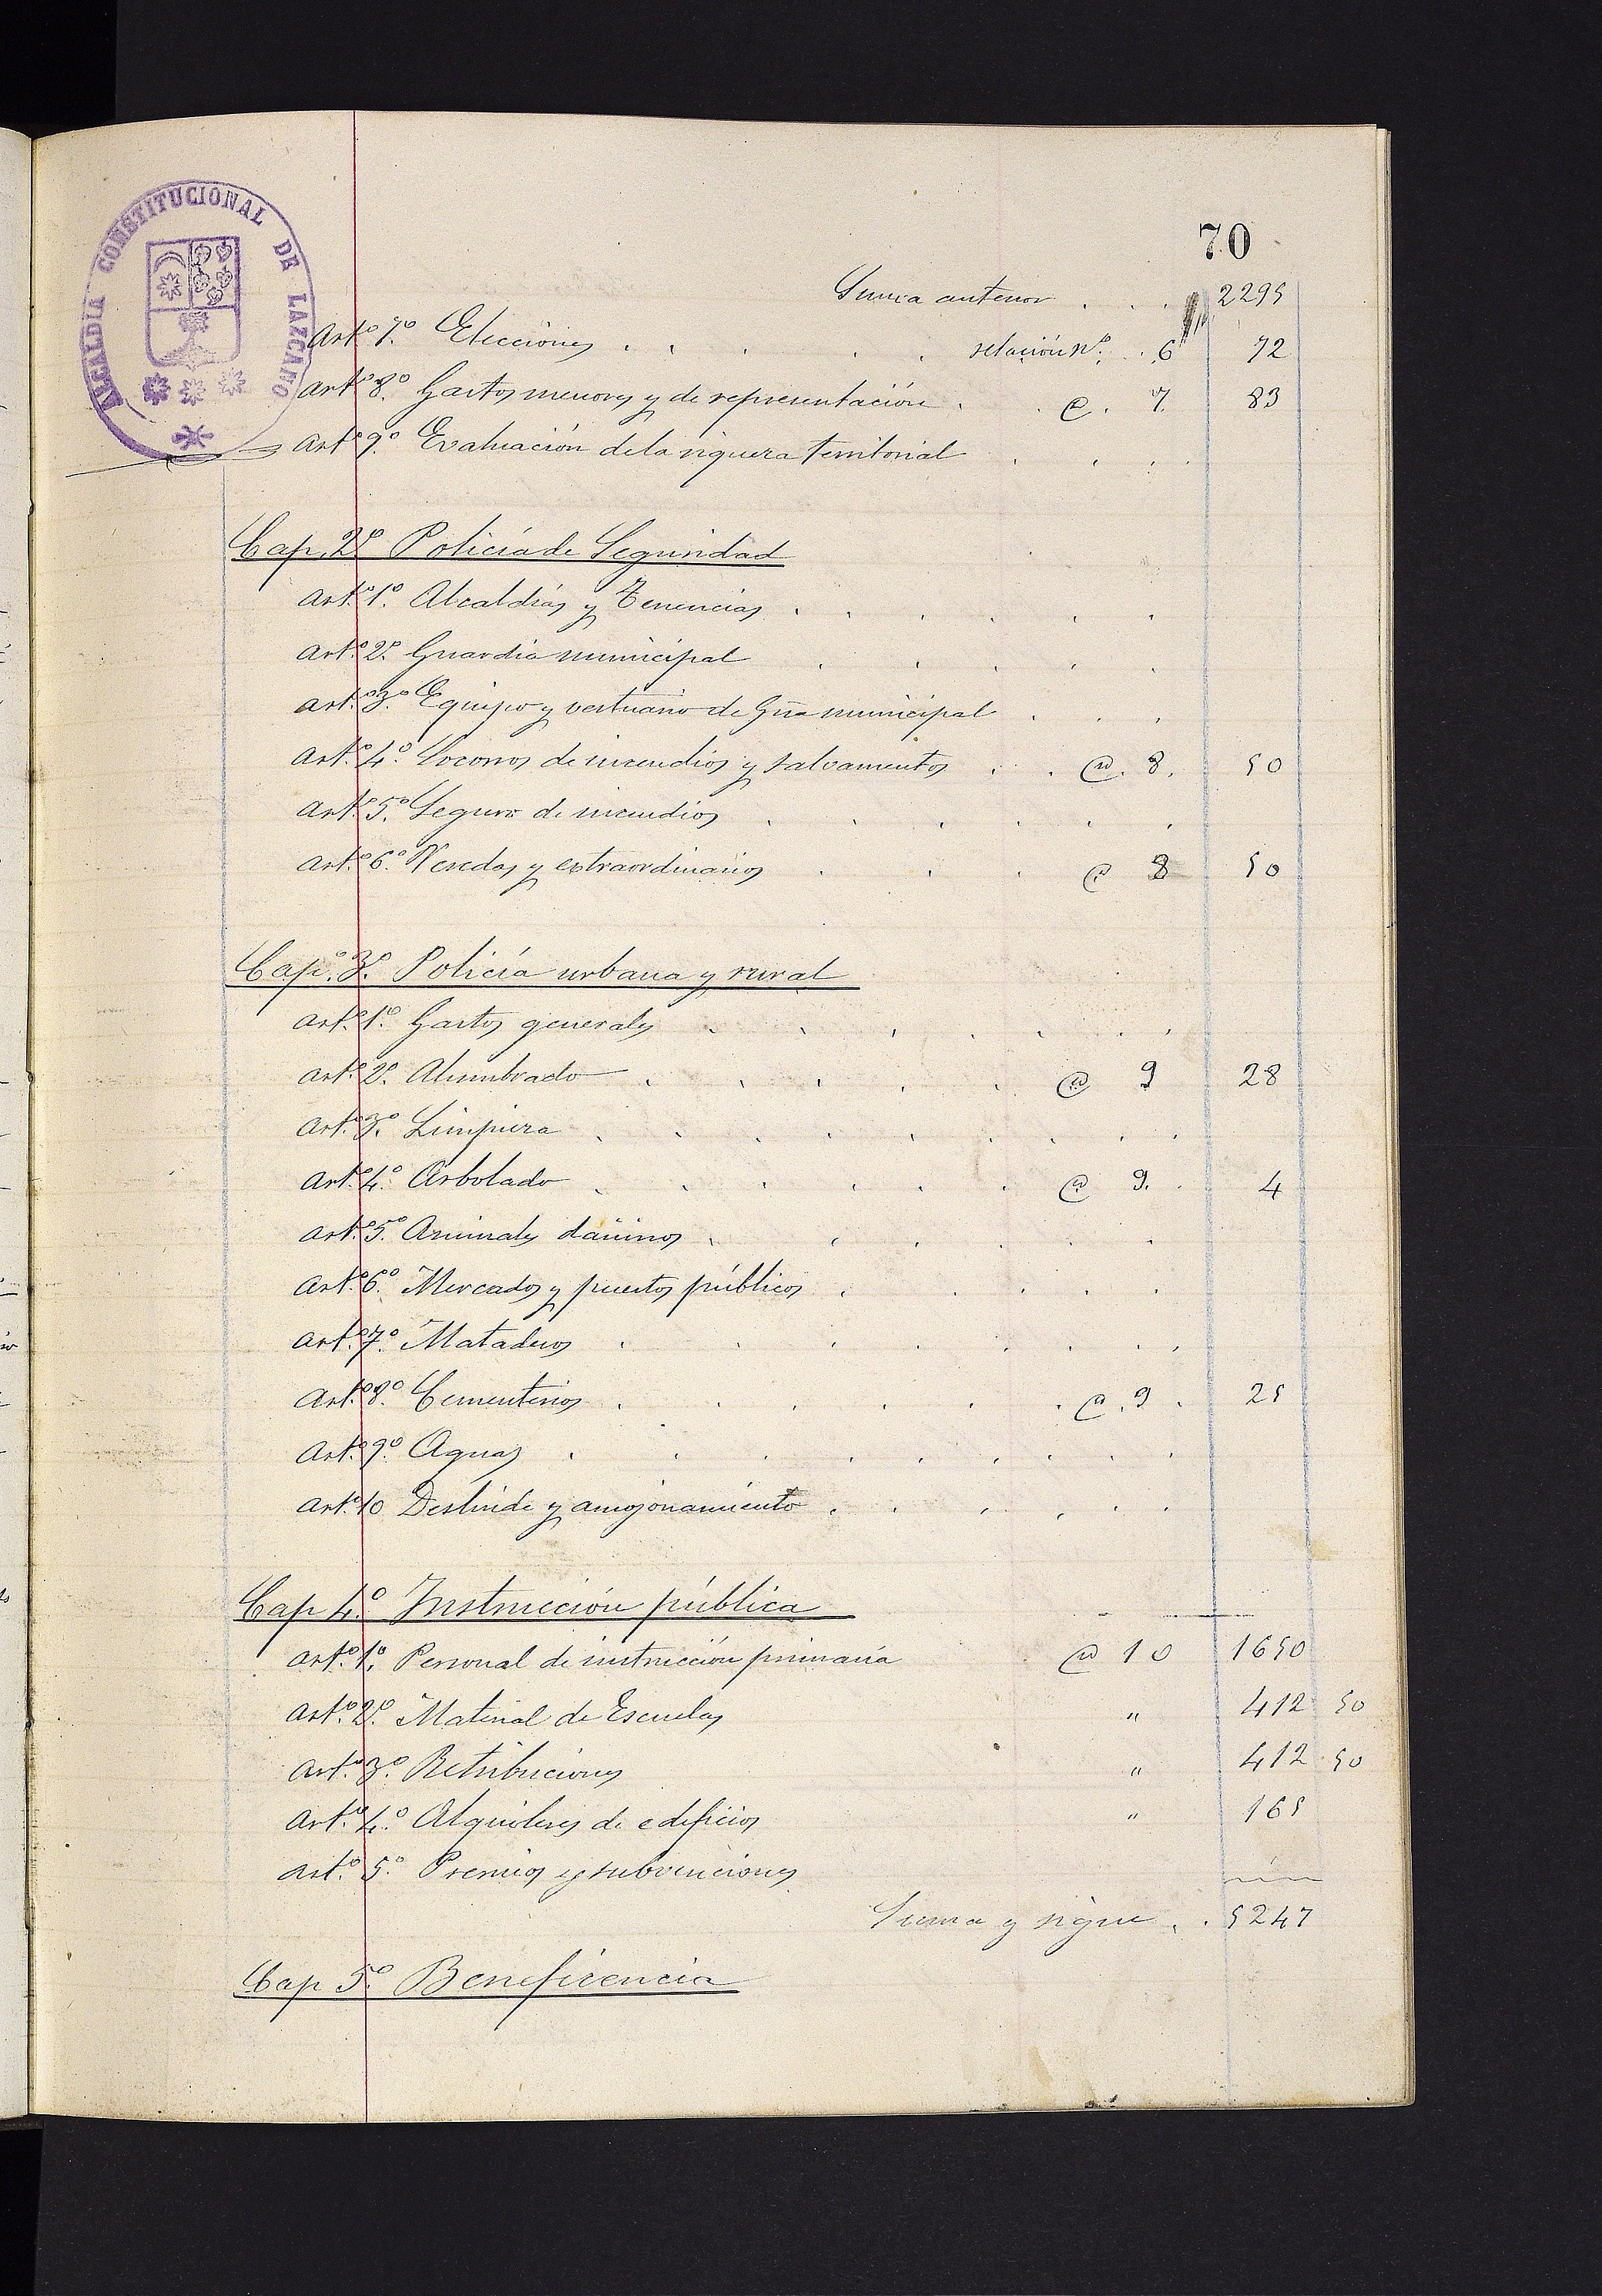 ALCALDIA CONSTITUCIONAL DE LAZCANO
70
Suma anterior . . . 2295
Art.º 7.º Elecciones . . . . . relación nº. . 6 72
Art.º 8.º Gastos menores y de representación . . @ . 7. 83
Art.º 9.º Evaluación de la riqueza territorial . . . .
Cap. 2º Policía de Seguridad
Art.º 1.º Alcaldías y Tenencias . . . . . .
Art.º 2.º Guardia municipal . . . . .
Art.º 3.º Equipo y vestuario de Gia municipal . . .
Art.º 4.º Socorros de incendios y salvamentos . . @. 8. 50
Art.º 5.º Seguro de incendios . . . . . .
Art.º 6.º Veredas y extraordinarios . . . @ 8 50
Cap.º 3.º Policía urbana y rural
Art.º 1.º Gastos generales . . . . . . .
Art.º 2.º Alumbrado . . . . . @ 9 28
Art.º 3.º Limpieza . . . . . . . . .
Art.º 4.º Arbolado . . . . . . @ 9. . 4
Art.º 5.º Animales dañinos . . . . . .
Art.º 6.º Mercados y puestos públicos . . . . .
Art.º 7.º Mataderos . . . . . . . .
Art.º 8.º Cementerios . . . . . . @ . 9 . 25
Art.º 9.º Aguas . . . . . . . . .
Art.º 10 Deslinde y amojonamiento . . . . . .
Cap 4.º Instrucción pública
Art.º 1.º Personal de instrucción primaria @ 10 1650
Art.º 2.º Material de Escuelas " 412 50
Art.º 3.º Retribuciones " 412 50
Art.º 4.º Alquileres de edificios " 165
Art.º 5.º Premios y subvenciones
Suma y sigue . . 5247
Cap 5.º Beneficencia